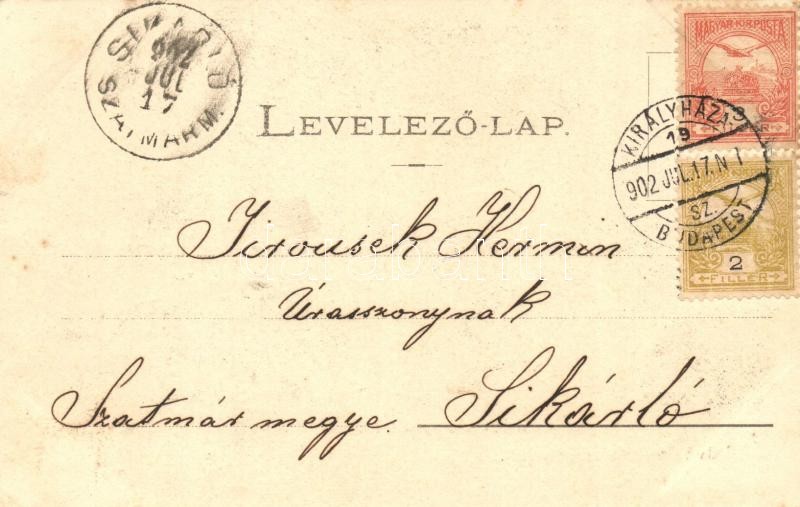 SIKÁRLÓ
902
JUL
17
SZATMÁRM.
MAGYAR KIR. POSTA
LEVELEZŐ-LAP.
KIRÁLYHÁZA-
19
902 JUL. 17. N 1
SZ.
BUDAPEST
2
FILLÉR
Jirousek Hermin
Úrasszonynak
Szatmár megye. Sikárló